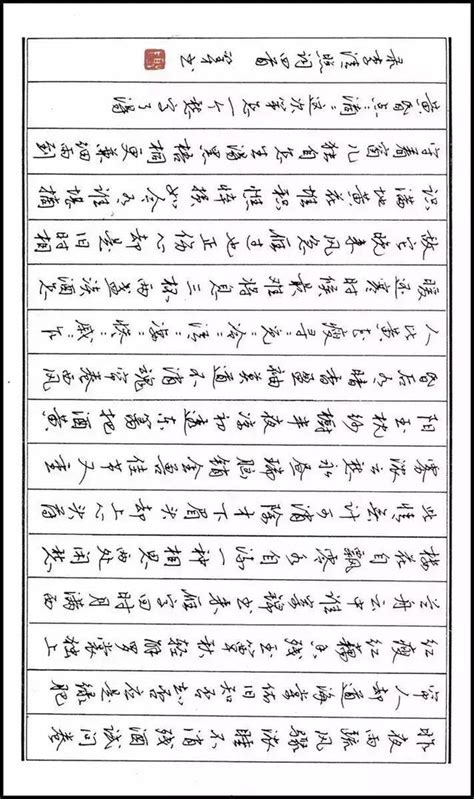 昨夜雨疏风骤浓睡不消残酒试问卷
帘人却道海棠依旧知否知否应是绿肥
红瘦红藕香残玉簟秋轻解罗裳独上
兰舟云中谁寄锦书来雁字回时月满西
楼花自飘零水自流一种相思两处闲愁
此情无计可消除才下眉头却上心头薄
雾浓云愁永昼瑞脑销金兽佳节又重
阳玉枕纱橱半夜凉初透东篱把酒黄
昏后有暗香盈袖莫道不消魂帘卷西风
人比黄花瘦寻々觅々冷々清々凄々惨々戚々乍
暖还寒时候最难将息三杯两盏淡酒怎
敌它晚来风急雁过也正伤心却是旧时相
识满地黄花堆积憔悴损如今有谁堪摘
守着窗儿独自怎生得黑梧桐更兼细雨到
黄昏点々滴々这次第怎一个愁字了得
录李清照词四首